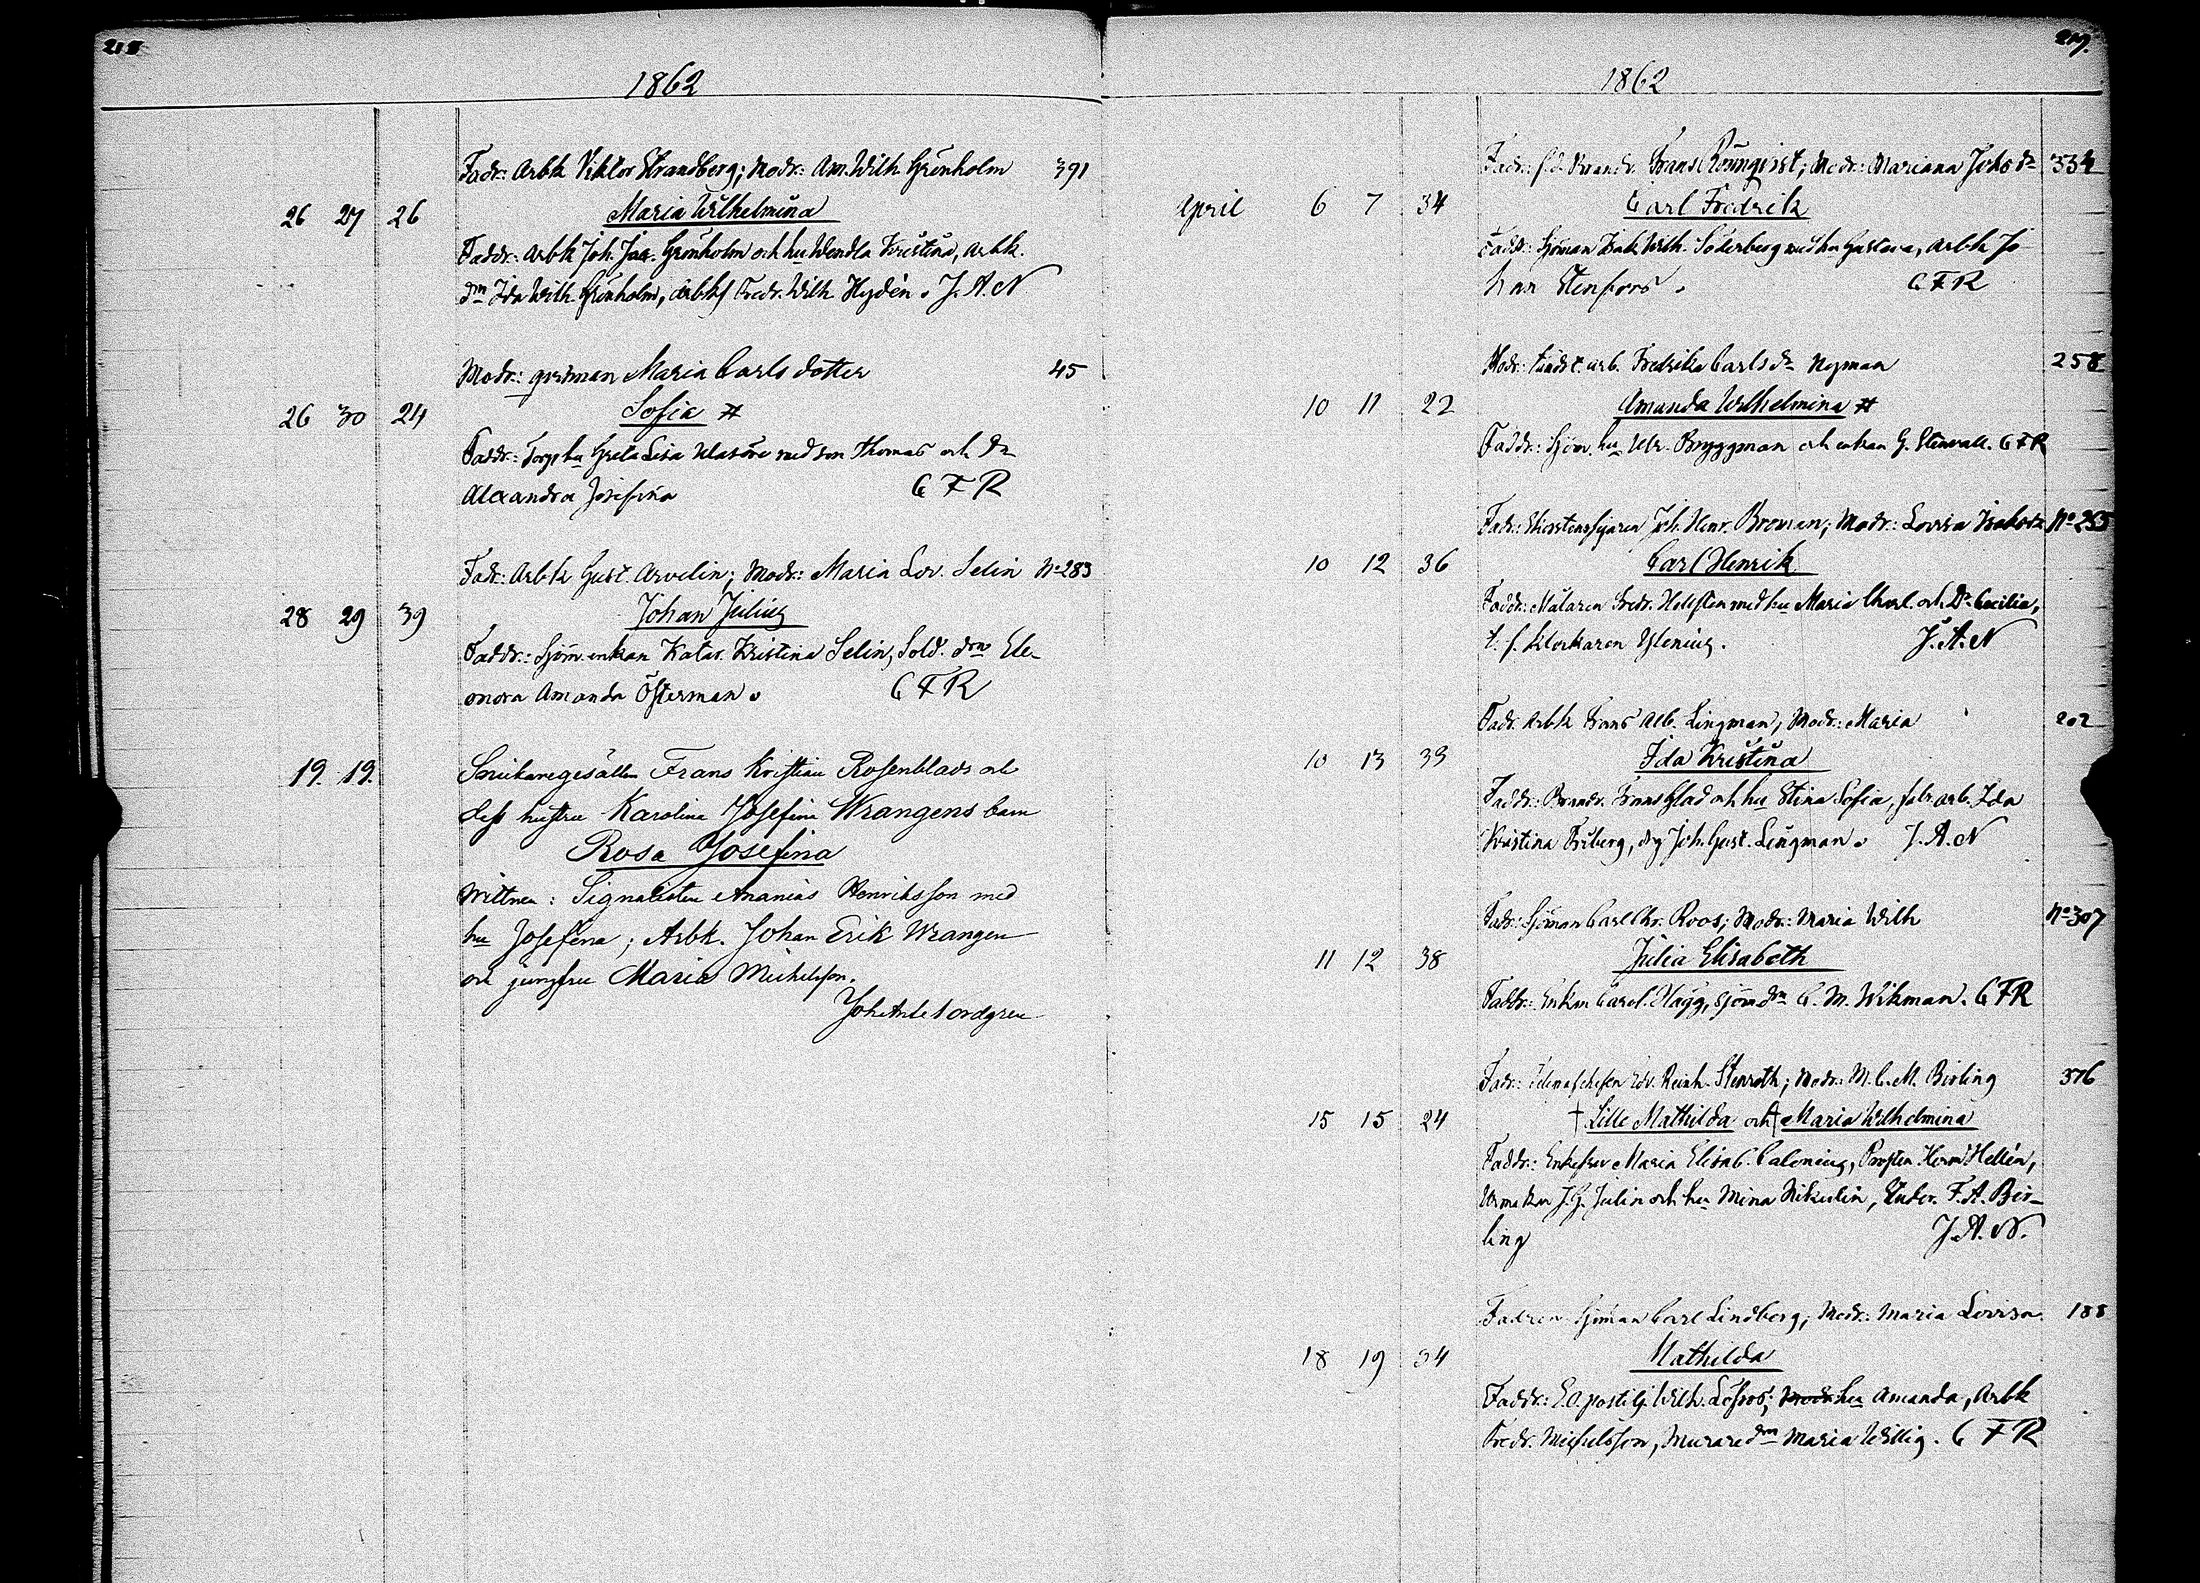 218
1862
Fadr: Arbk Viktor Strandberg; Modr: Am. Wilh Grönholm 391
26 27 26 Maria Wilhelmina
Faddr: Arbk Joh. Jac. Grönholm och hu Wendla Kristina, arbk.
drn Ida Wilh. Grönholm, arbks Fredr. Wilh Hydén. J. A. N
Modr: Maria Carlsdotter 45
26 30 24 Sofia #
Faddr: hu Greta Lisa med son Thomas och dr
Alexandra Josefina C F R
Fadr: Arbk Gust. Arvelin; Modr: Maria Lov. Selin No 283
28 29 39 Johan Julius
Faddr: Sjöm. enkan Katar. Kristina Selin, Sold. drn Ele-
onora Amanda Österman. C F R
19. 19. Frans Kristian Rosenblads och
dess hustru Karolina Josefina Wrangens barn
Rosa Josefina
Wittnen: Signalisten Ananias Henriksson med
hu Josefina; Arbk. Johan Erik Wrangen
och jungfru Maria Michelsson.
Joh Ante Nordgren
219.
1862
Fadr: f.d. Brandv. Frans Rönnqvist; Modr: Mariana Johsdr 334
April 6 7 34 Carl Fredrik
Faddr: Sjöman Isak Wilh. Söderberg med hu Gustava, Arbk Jo
han Stenfors. C F R
Modr: arb. Fredrika Carlsdr Nyman 258
10 11 22 Amanda Wilhelmina #
Faddr: Sjöm. hu Ulr. Bryggman och enkan G. Stenvall. C F R
Fadr: Skorstensfejaren Joh. Henr. Broman; Modr: Lovisa Isaksdr No 255
10 12 36 Carl Henrik
Faddr: Målaren Fredr. Hellsten med hu Maria Charl. och Dr Cecilia,
t. f. klockaren Ylenius. J. A. N
Fadr. Arbk Frans Alb. Lingman; Modr: Maria 202
10 13 33 Ida Kristina
Faddr: Brandv. Frans Glad och hu Stina Sofia, fabr. arb. Ida
Kristina Friberg, drg Joh. Gust. Lingman. J. A. N
Fadr: Sjöman Carl Chr. Roos; Modr: Maria Wilh No 307
11 12 38 Julia Elisabeth
Faddr: Enkan Carol. Hägg, sjöm drn C. M. Wikman. C F R
Fadr: Edv. Reinh. Stenroth; Modr: M. C. M. Birling 376
15 15 24 † Lille Mathilda och † Maria Wilhelmina
Faddr: Enkefru Maria Elisab. Calenius, Prosten Herm Hellén,
Urmakar J. G. Julin och hu Mina Nikulin, Studer. F. A. Bir-
ling J. A. N.
Fadren Sjöman Carl Lindberg; Modr: Maria Lovisa 188
18 19 34 Mathilda
Faddr: E.O. postilj. Wilh. hu Amanda, Arbk
Fredr. Michelsson, Murare drn Maria Willig. C F R